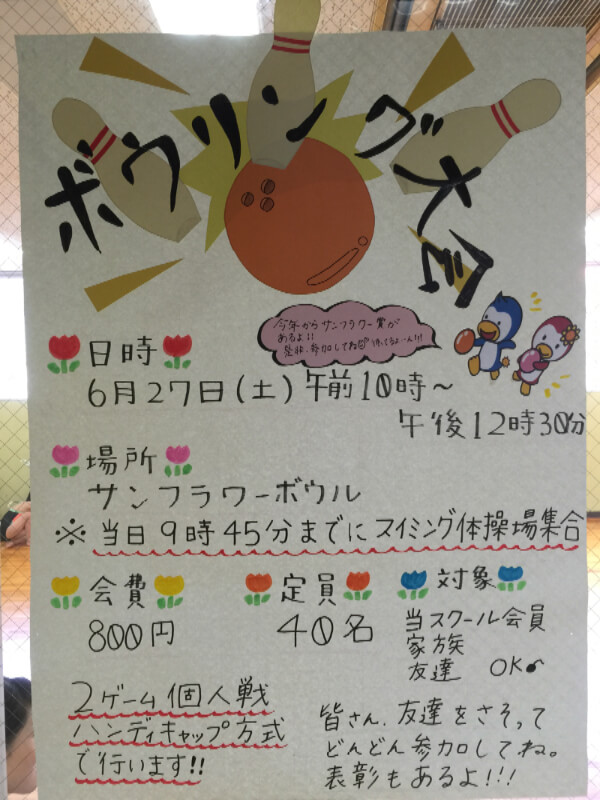 ボウリング大会
今年からサンフラワー賞が
あるよ!!
是非、参加してね
日時
6月27日(土)午前10時～
午後12時30分
場所
サンフラワーボウル
※当日9時45分までにスイミング体操場集合
会費
800円
定員
40名
対象
当スクール会員
家族
友達 OK
2ゲーム個人戦
ハンディキャップ方式
で行います!!
皆さん、友達をさそって
どんどん参加してね。
表彰もあるよ!!!